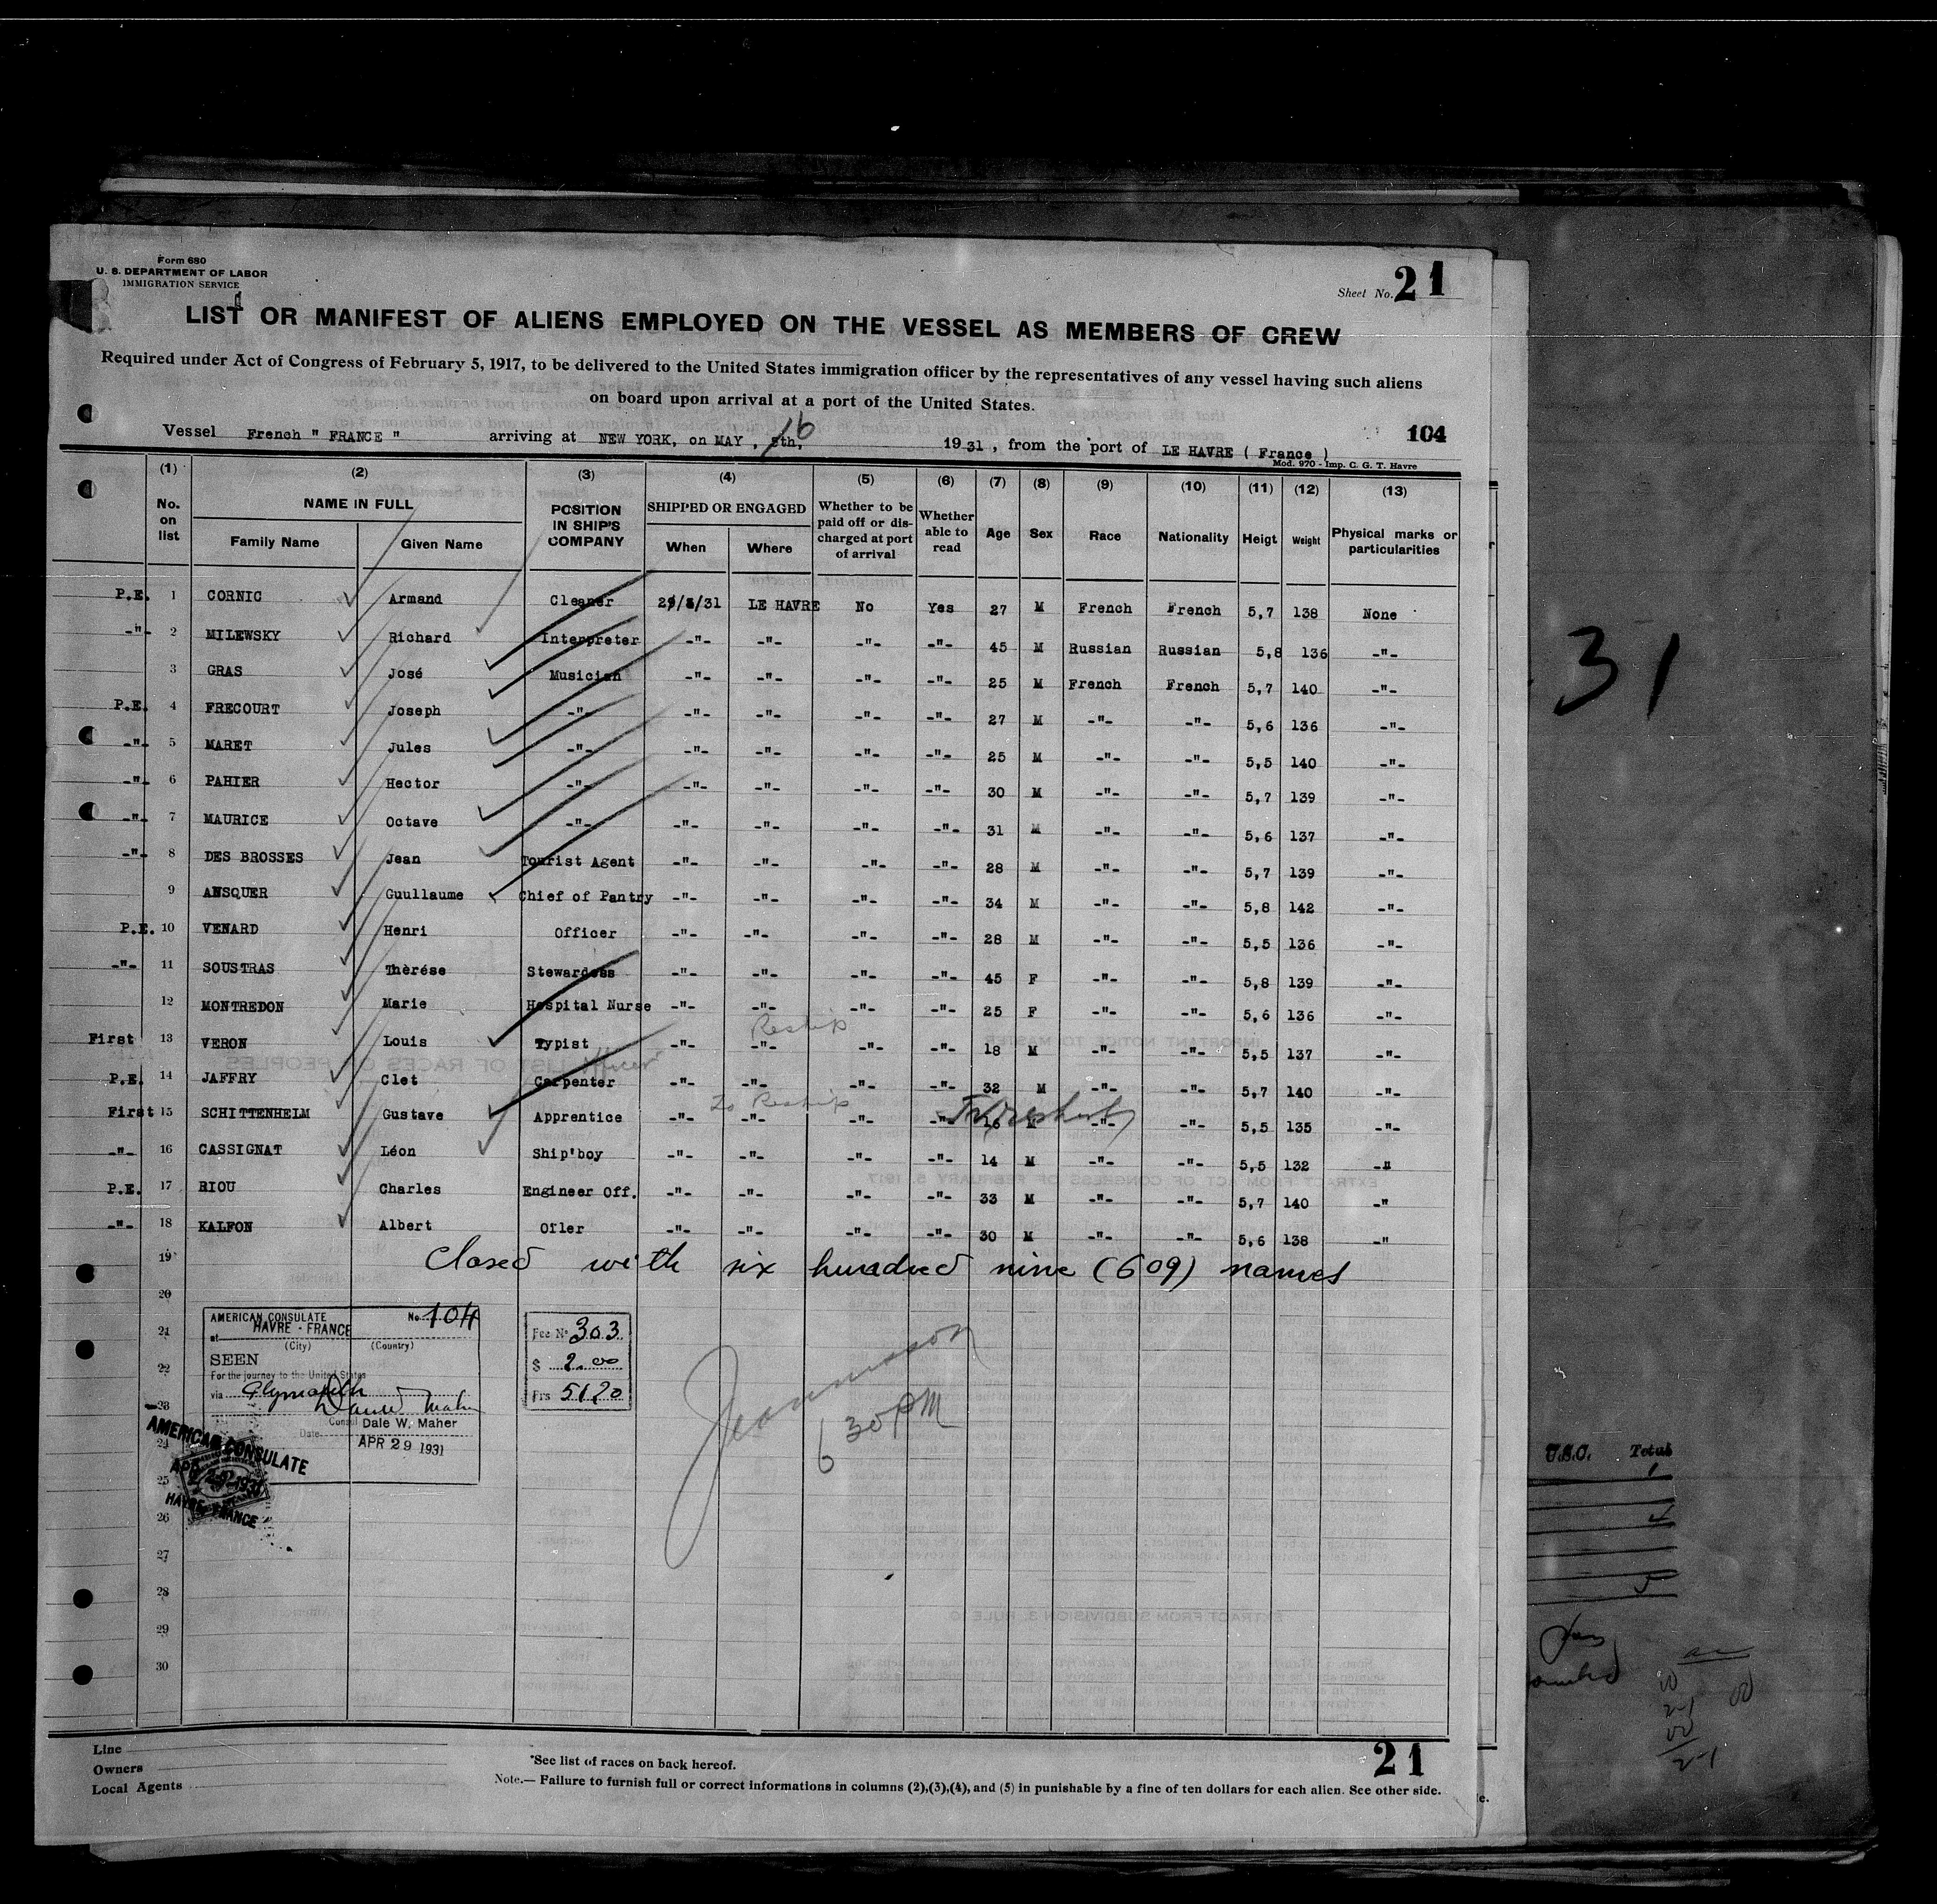 Form 680
U. S. DEPARTMENT OF LABOR
IMMIGRATION SERVICE
Sheet No. 21
LIST OR MANIFEST OF ALIENS EMPLOYED ON THE VESSEL AS MEMBERS OF CREW
Required under Act of Congress of February 5, 1917, to be delivered to the United States immigration officer by the representatives of any vessel having such aliens
on board upon arrival at a port of the United States.
Vessel French " FRANCE " arriving at NEW YORK, on MAY , 16 1931 , from the port of LE HAVRE ( France )
104
Mod. 970 - Imp. C. G. T. Havre
(1) (2) (3) (4) (5) (6) (7) (8) (9) (10) (11) (12) (13)
No. on list NAME IN FULL Family Name Given Name POSITION IN SHIP'S COMPANY SHIPPED OR ENGAGED When Where Whether to be paid off or discharged at port of arrival Whether able to read Age Sex Race Nationality Heigt Weight Physical marks or particularities
P.E. 1 CORNIC Armand Cleaner /31 LE HAVRE No Yes 27 M French French 5,7 138 None
-"- 2 MILEWSKY Richard Interpreter -"- -"- -"- -"- 45 M Russian Russian 5,8 136 -"-
3 GRAS José Musician -"- -"- -"- -"- 25 M French French 5,7 140 -"-
P.E. 4 FRECOURT Joseph -"- -"- -"- -"- -"- 27 M -"- -"- 5,6 136 -"-
-"- 5 MARET Jules -"- -"- -"- -"- -"- 25 M -"- -"- 5,5 140 -"-
-"- 6 PAHIER Hector -"- -"- -"- -"- -"- 30 M -"- -"- 5,7 139 -"-
-"- 7 MAURICE Octave -"- -"- -"- -"- -"- 31 M -"- -"- 5,6 137 -"-
-"- 8 DES BROSSES Jean Tourist Agent -"- -"- -"- -"- 28 M -"- -"- 5,7 139 -"-
9 ANSQUER Guullaume Chief of Pantry -"- -"- -"- -"- 34 M -"- -"- 5,8 142 -"-
P.E. 10 VENARD Henri Officer -"- -"- -"- -"- 28 M -"- -"- 5,5 136 -"-
-"- 11 SOUSTRAS Thèrése Stewardess -"- -"- -"- -"- 45 F -"- -"- 5,8 139 -"-
12 MONTREDON Marie Hospital Nurse -"- -"- -"- -"- 25 F -"- -"- 5,6 136 -"-
Reship
First 13 VERON Louis Typist -"- -"- -"- -"- 18 M -"- -"- 5,5 137 -"-
P.E. 14 JAFFRY Clet Carpenter -"- -"- -"- -"- 32 M -"- -"- 5,7 140 -"-
To Reship
First 15 SCHITTENHEIM Gustave Apprentice -"- -"- -"- -"- 16 M -"- -"- 5,5 135 -"-
-"- 16 CASSIGNAT Léon Ship'boy -"- -"- -"- -"- 14 M -"- -"- 5,5 132 -"
P.E. 17 RIOU Charles Engineer Off. -"- -"- -"- -"- 33 M -"- -"- 5,7 140 -"
-"- 18 KALFON Albert Oiler -"- -"- -"- -"- 30 M -"- -"- 5,6 138 -"
19 Closed with six hundred nine (609) names
20
21
22
23
24
25
26
27
28
29
30
AMERICAN CONSULATE No. 104
at HAVRE - FRANCE
(City) (Country)
SEEN
For the journey to the United States
via Plymouth
Consul Dale W. Maher
Date APR 29 1931
Fee No 303
$ 2.00
Frs 51,20
AMERICAN CONSULATE
APR 29 1931
HAVRE, FRANCE
6 30 PM
Line
Owners
Local Agents
*See list of races on back hereof.
Note.— Failure to furnish full or correct informations in columns (2),(3),(4), and (5) in punishable by a fine of ten dollars for each alien. See other side.
21
31
U.S.C. Total